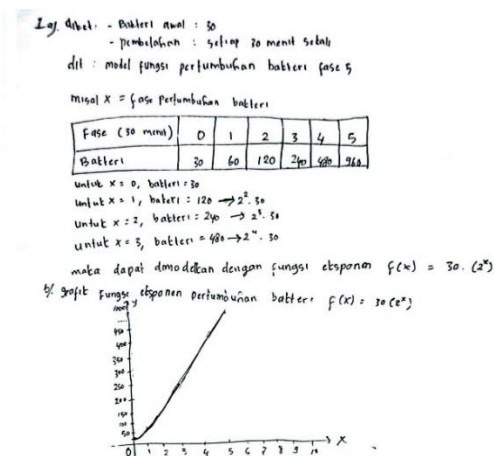 1 a). diket : - Bakteri awal : 30
- pembelahan : setiap 30 menit sekali
dit : model fungsi pertumbuhan bakteri fase 5
misal x = fase pertumbuhan bakteri
Fase (30 menit) 0 1 2 3 4 5
Bakteri 30 60 120 240 480 960
untuk x = 0, bakteri = 30
untuk x = 1, bakteri : 120 → 2². 30
untuk x = 2, bakteri = 240 → 2³. 30
untuk x = 3, bakteri = 480 → 2⁴. 30
maka dapat dimodelkan dengan fungsi eksponen f(x) = 30. (2ˣ)
b/. grafik fungsi eksponen pertumbuhan bakteri f(x) = 30 (2ˣ)
y
400
350
300
250
200
150
100
50
0 1 2 3 4 5 6 7 8 9 10 x